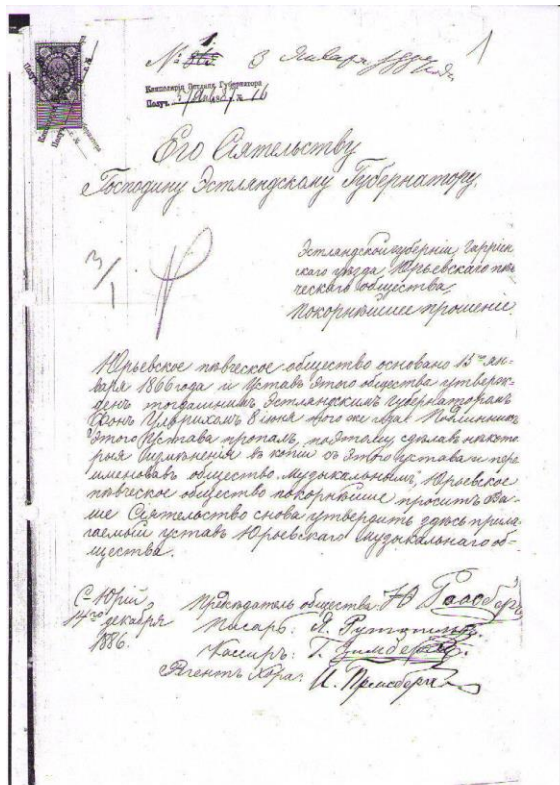 № 1 3 Января 1887 1
Канцелярія Эстлянд. Губернатора
Получ. 3 Янв 87 № 16
Его Сіятельству
Господину Эстляндскому Губернатору.
3/1
Эстляндской губерніи, Гаррien
скаго уѣзда Юрьевскаго пѣв
ческаго общества.
Покорнѣйшее прошеніе.
Юрьевское пѣвческое общество основано 15го ян-
варя 1866 года и Уставъ этого общества утверж-
денъ тогдашнимъ Эстляндскимъ Губернаторомъ
Фонъ Ульрихомъ 8 іюня того же года. Подлинникъ
этого Устава пропалъ, поэтому сдѣлавъ некото
рыя измѣненія въ копіи съ этого устава и пере
именовавъ общество „музыкальнымъ“, Юрьевское
пѣвческое общество покорнѣйше проситъ Ва-
ше Сіятельство снова утвердить здѣсь прила-
гаемый уставъ Юрьевскаго музыкальнаго об-
щества.
С-Юрій
14го декабря
1886.
Предсѣдатель общества: Ю
Писарь: Я.
Кассиръ: Г.
Регентъ Хора: И.